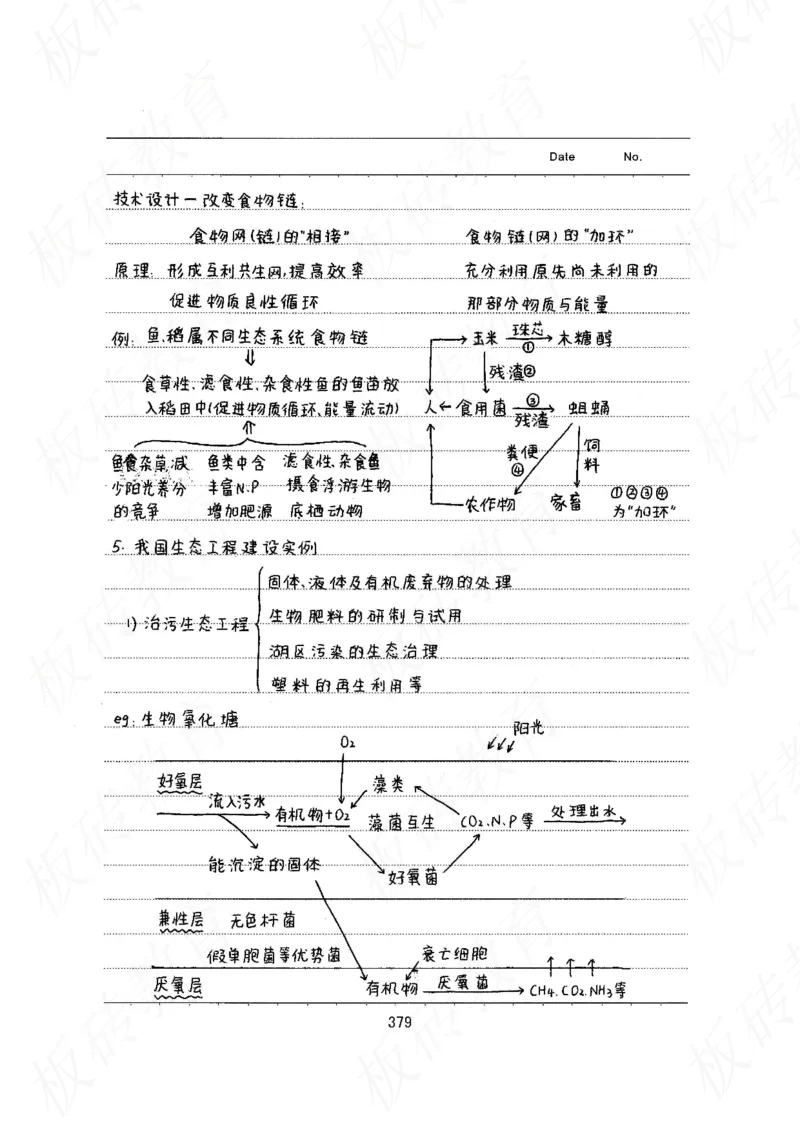 Date No.
技术设计—改变食物链:
食物网(链)的"相接" 食物链(网)的"加环"
原理: 形成互利共生网,提高效率 充分利用原先尚未利用的
促进物质良性循环 那部分物质与能量
例: 鱼、稻属不同生态系统食物链 玉米 珠芯 ① 木糖醇
⇓
残渣②
食草性、滤食性、杂食性鱼的鱼苗放
入稻田中(促进物质循环、能量流动) 人←食用菌 ③ 残渣 蛆蛹
⇑
粪便 ④ 饲料
鱼食杂草减 鱼类中含 滤食性、杂食鱼
少阳光养分 丰富N.P 摄食浮游生物 农作物 家畜 ①②③④
的竞争 增加肥源 底栖动物 为"加环"
5. 我国生态工程建设实例
固体、液体及有机废弃物的处理
1) 治污生态工程 生物肥料的研制与试用
湖区污染的生态治理
塑料的再生利用等
eg: 生物氧化塘
O₂ 阳光
好氧层 藻类
流入污水 有机物+O₂ 藻菌互生 CO₂、N、P等 处理出水
能沉淀的固体 好氧菌
兼性层 无色杆菌
假单胞菌等优势菌 衰亡细胞
厌氧层 有机物 厌氧菌 CH₄.CO₂.NH₃等
379
板砖教育
板砖教育
板砖教育
板砖教育
板砖教育
板砖教育
板砖教育
板砖教育
板砖教育